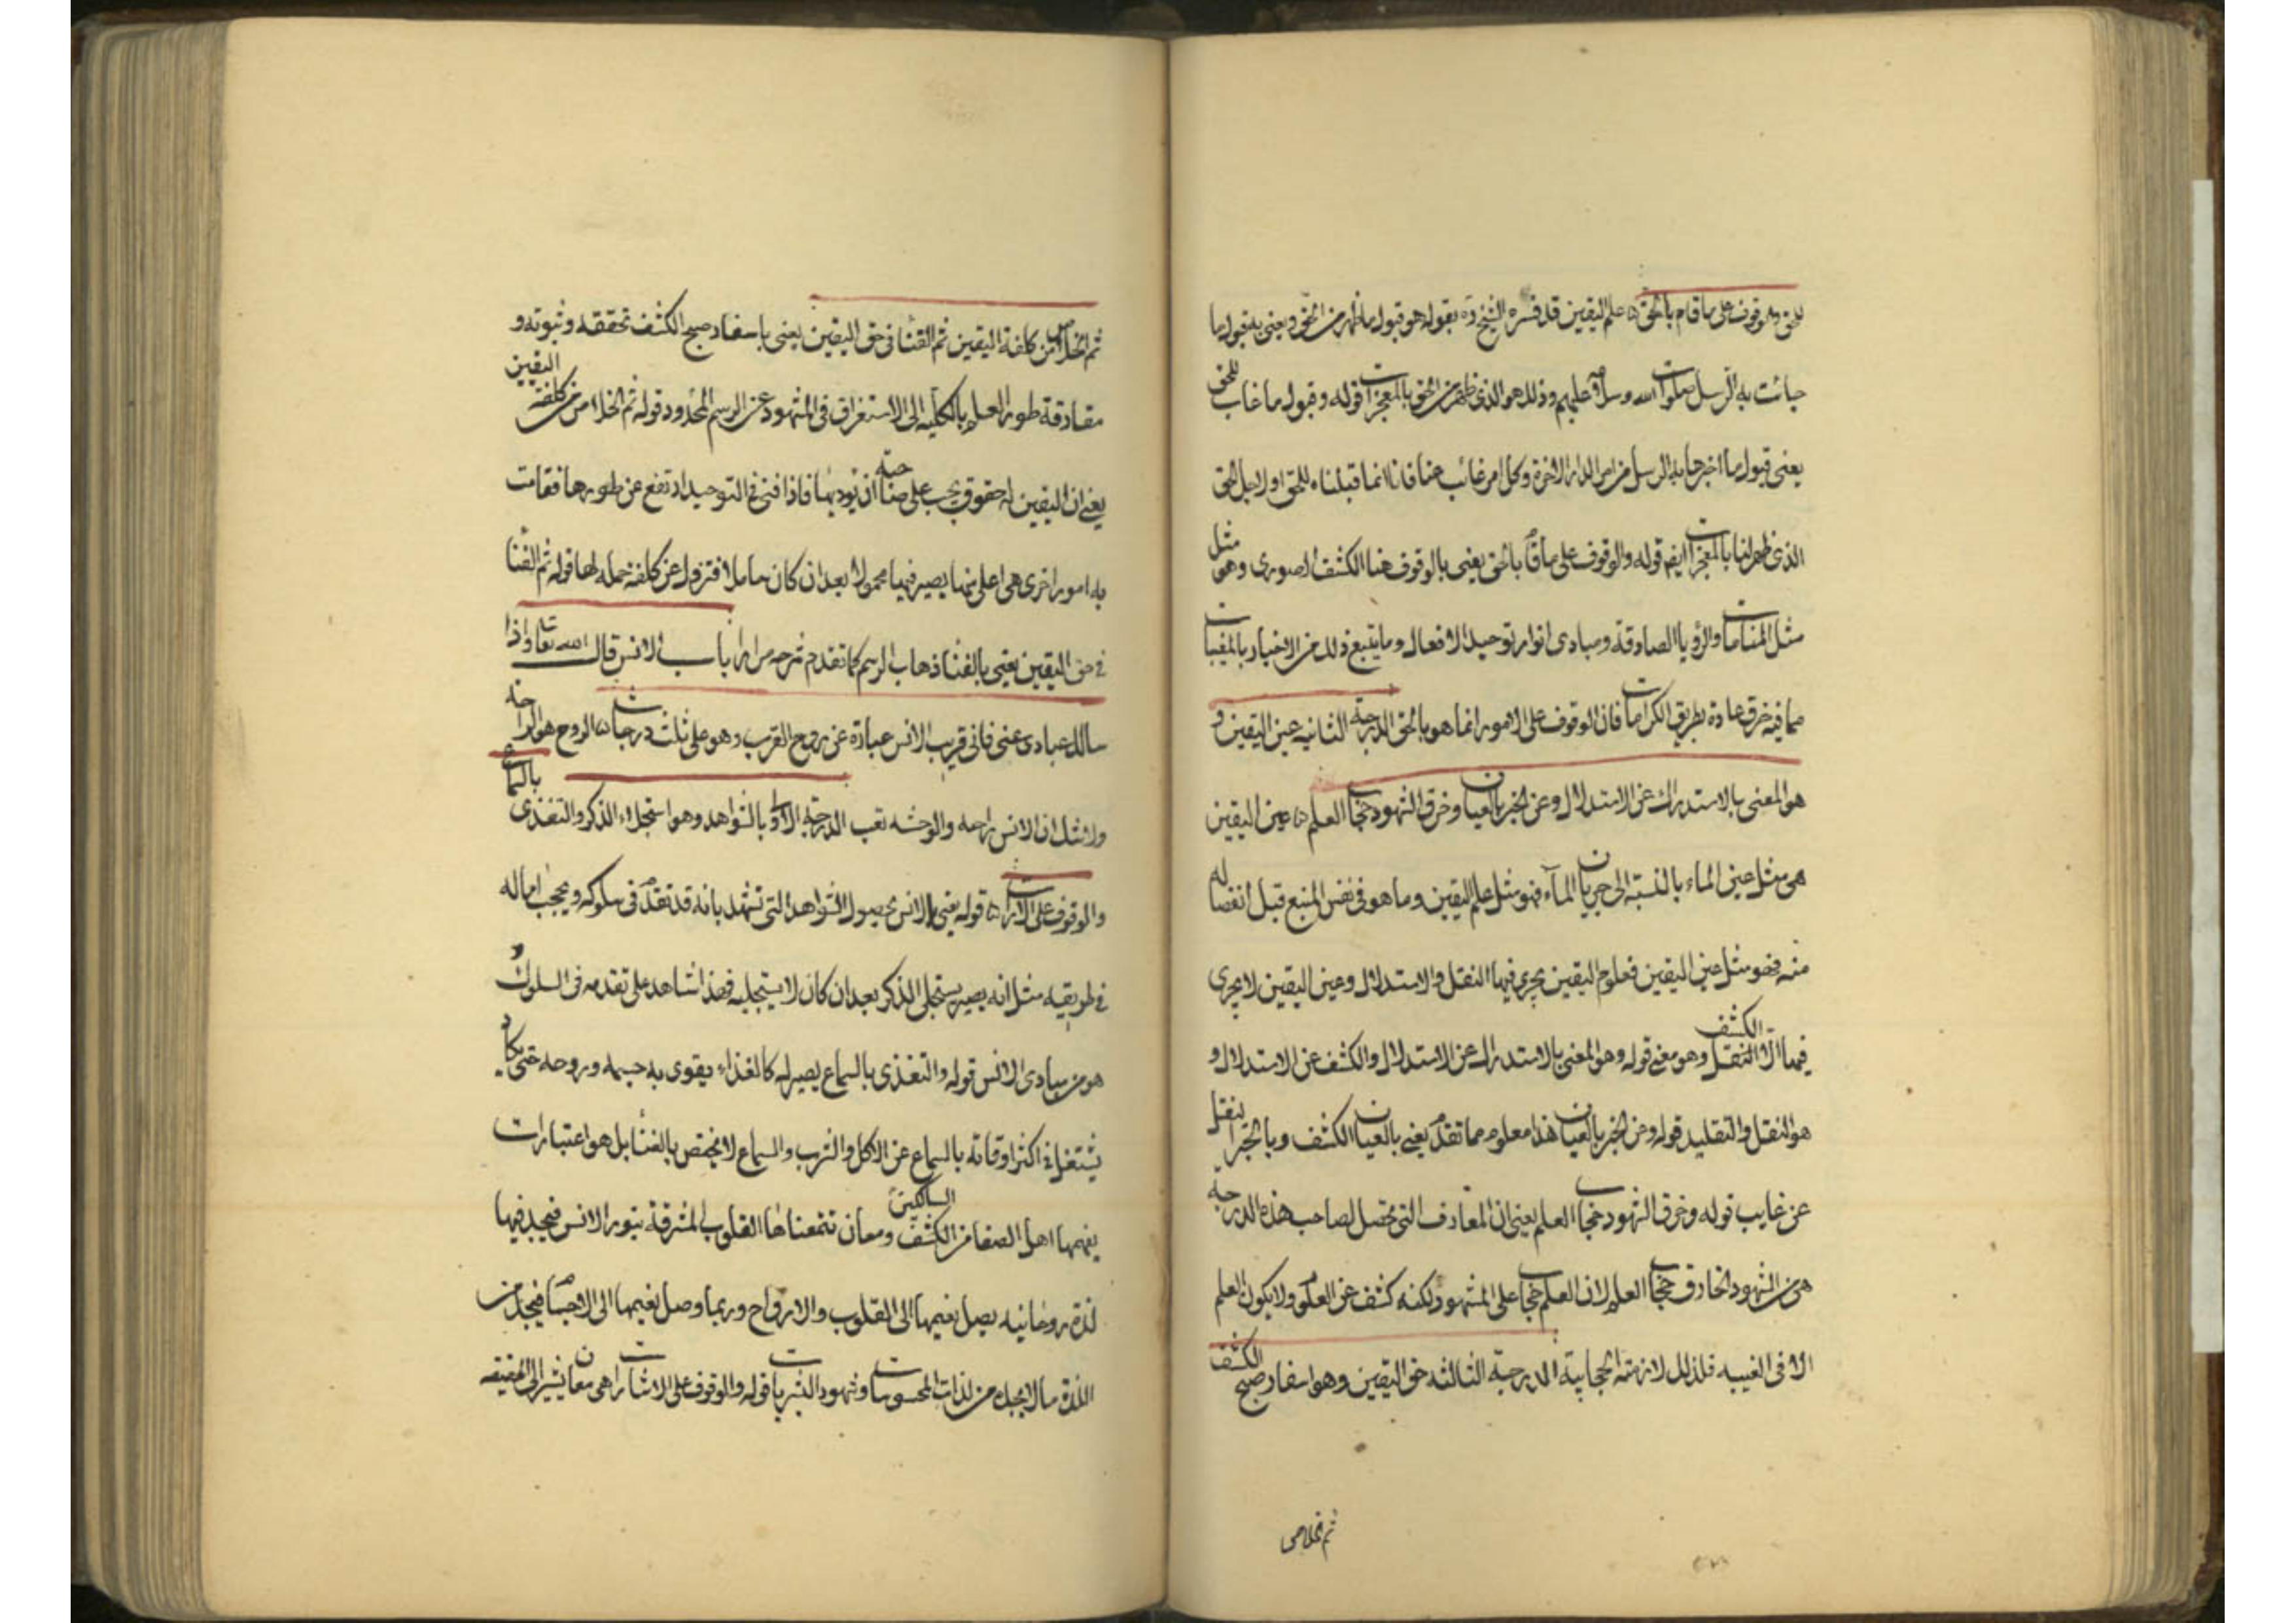 للحق والوقوف على ما قام بالحق ۵ علم اليقين قد فسره الشيخ ره بقوله هو قبول ما ظهر من الحق ويعنى به قبول ما
جائت به الرسل صلوات الله وسلامه عليهم وذلك هو الذى ظهر من الحق بالمعجزات قوله وقبول ما غاب للحق
يعنى قبول ما اخبرها به الرسل من امر الدار الاخرة وكل امر غائب عنا فانا انما قبلناه للحق او لاجل الحق
الذى ظهر لنا بالمعجزات ايضا قوله والوقوف على ما قام بالحق يعنى بالوقوف هنا الكشف الصورى وهو مثل
مثل المنامات والرؤيا الصادقة ومبادى انوار توحيد الافعال وما يتبع ذلك من الاخبار بالمغيبات
مما فيه خرق عادة بطريق الكرامات فان الوقوف على الامور انما هو بالحق الدرجة الثانيه عين اليقين و
هو المغنى بالاستدراك عن الاستدلال وعن الخبر بالعيان وخرق الشهود حجاب العلم ۵ عين اليقين
هى مثل عين الماء بالنسبة الى جريان الماء فهو مثل علم اليقين وما هو فى نفس المنبع قبل انفصاله
منه فهو مثل عين اليقين فعلوم اليقين يجرى فيها النقل والاستدلال وعين اليقين لا يجرى
فيها الا النقل الكشف وهو معنى قوله وهو المغنى بالاستدراك عن الاستدلال والكشف عن الاستدلال و
هو النقل والتقليد قوله وعن الخبر بالعيان هذا معلوم مما تقدم يعنى بالعيان الكشف وبالخبر النقل
عن غايب قوله وخرق الشهود حجاب العلم يعنى ان المعارف التى تحصل لصاحب هذه الدرجة
هى من الشهود الخارق حجاب العلم لان العلم حجاب على المشهود ولكنه كشف عن المعلوم ولا يكون العلم
الا فى الغيبه فلذلك لازمته الحجابية الدرجة الثالثه حق اليقين وهو اسفار صبح الكشف
ثم الخلاص
ثم الخلاص من كلفة اليقين ثم الفنا فى حق اليقين يعنى باسفار صبح الكشف تحققه وثبوته و
مفارقة طور العلم بالكلية الى الاستغراق فى المشهود عن الرسم المحدود قوله ثم الخلاص من كلفة اليقين
يعنى ان اليقين له حقوق يجب على صاحبه ان يؤديها فاذا فنى فى التوحيد ارتفع عن طورها فقامت
به امور اخرى هى اعلى منها يصير فيها محمولا بعد ان كان حاملا فتزول عن كلفة حمله لها قوله ثم الفنا
فى حق اليقين يعنى بالفنا ذهاب الرسم كما تقدم شرحه مرارا باب الانس قال الله تعا واذا
سالك عبادى عنى فانى قريب الانس عبارة عن روح القرب وهو على ثلث درجات ۵ الروح هو الراحة
ولا شك ان الانس راحه والوحشه تعب الدرجة الاولى بالشواهد وهو استحلاء الذكر والتغذى بالسماع
والوقوف على الاشارات ۵ قوله يعنى بالانس بحصول الشواهد التى تشهد بانه قد تقدم فى سلوكه ويجب اماله
فى طريقيه مثل انه يصير يستحلى الذكر بعد ان كان لا يستحليه فهذا شاهد على تقدمه فى السلوك و
هو من مبادى الانس قوله والتغذى بالسماع يصير له كالغذاء يقوى به جسمه وروحه حتى يكاد
يشتغل فى اكثر اوقاته بالسماع عن الاكل والشرب والسماع لا يختص بالغنا بل هو اعتبارات
يفهمها اهل الصفا من الكشف السالكين ومعان تتمعناها القلوب المشرقة بنور الانس فيجد فيها
لذة روحانيه يصل نعيمها الى القلوب والارواح وربما وصل نعيمها الى الاجسام فيجد من
اللذة ما لا يجده من لذات المحسوسات وشهود البشريات قوله والوقوف على الاشارات هى معان يشير الى الحقيقه